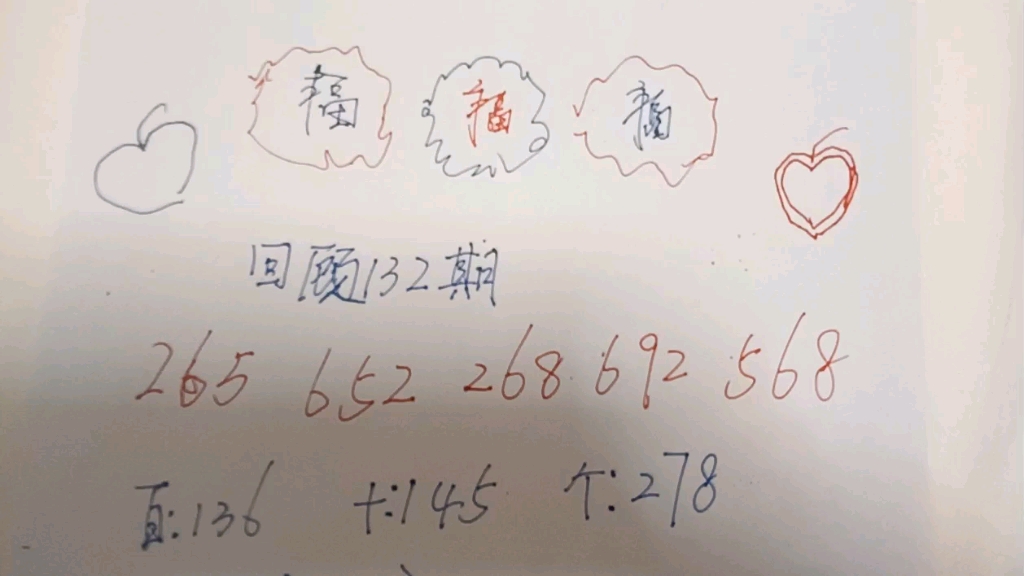 福 福 福
回顾132期
265 652 268 692 568
百:136 十:145 个:278